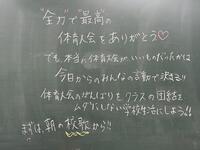 "全力"で"最高"の
体育大会をありがとう♡
でも、本当に体育大会が、いいものだったかは
今日からのみんなの言動で決まる!!
体育大会のがんばりをクラスの団結を
ムダにしない学校生活にしよう!!
まずは、朝の校歌から!!